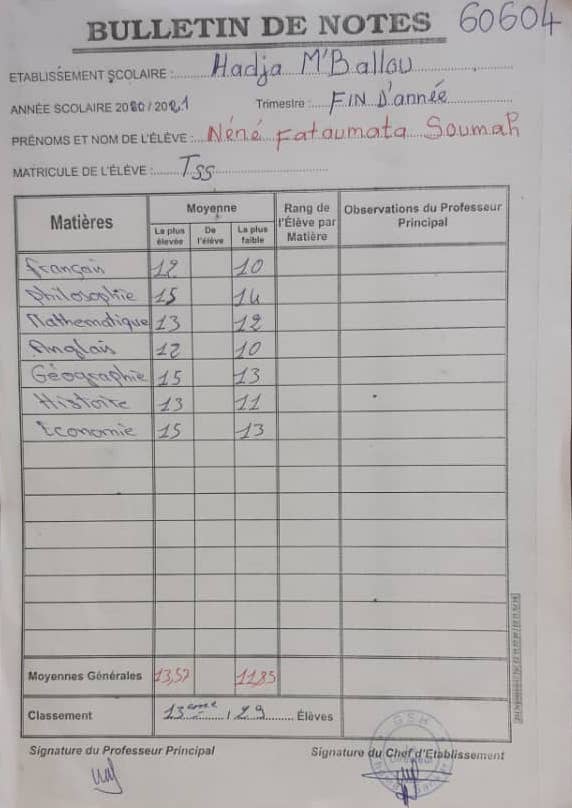 BULLETIN DE NOTES 60604
ETABLISSEMENT SCOLAIRE : Hadja M'Ballou
ANNÉE SCOLAIRE 2020 / 2021 Trimestre : FIN D'année
PRÉNOMS ET NOM DE L'ÉLÈVE : Néné Fatoumata Soumah
MATRICULE DE L'ÉLÈVE : TSS
Matières Moyenne Rang de l'Élève par Matière Observations du Professeur Principal
La plus élevée De l'élève La plus faible
Français 12 10
Philosophie 15 14
Mathematique 13 12
Anglais 12 10
Géographie 15 13
Histoire 13 11
Economie 15 13
Moyennes Générales 13,57 11,85
Classement 13eme / 29 Élèves
Signature du Professeur Principal Signature du Chef d'Etablissement